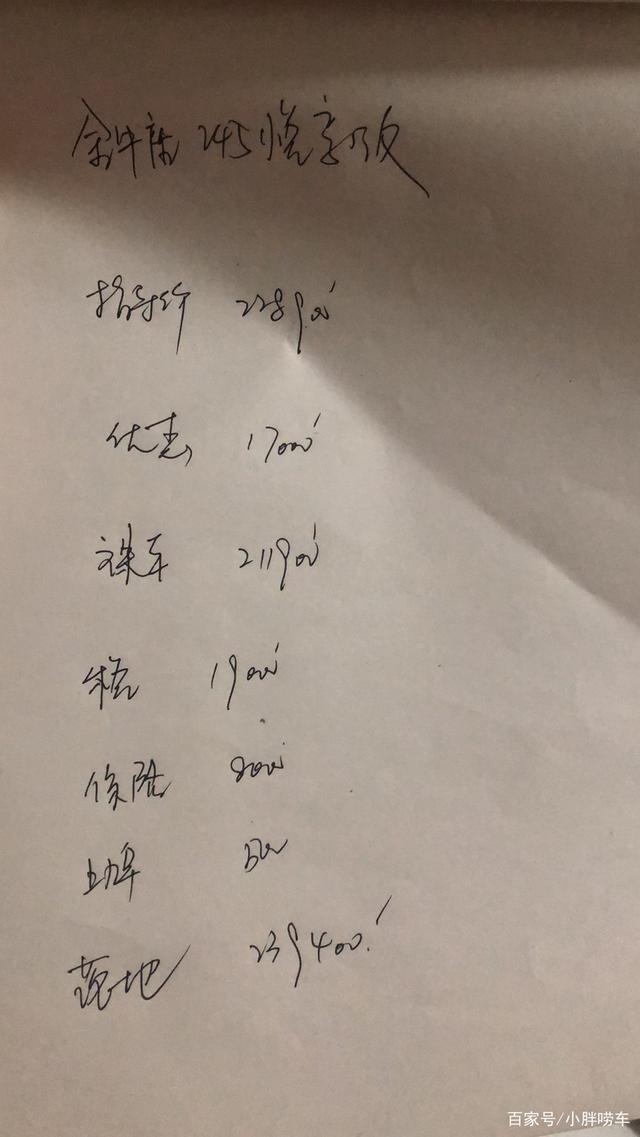 余牛磨 245悦享改
指导价 228900
优惠 17000
裸车 211900
税 19000
保险 8000
上牌 500
落地 239400.
百家号/小胖唠车